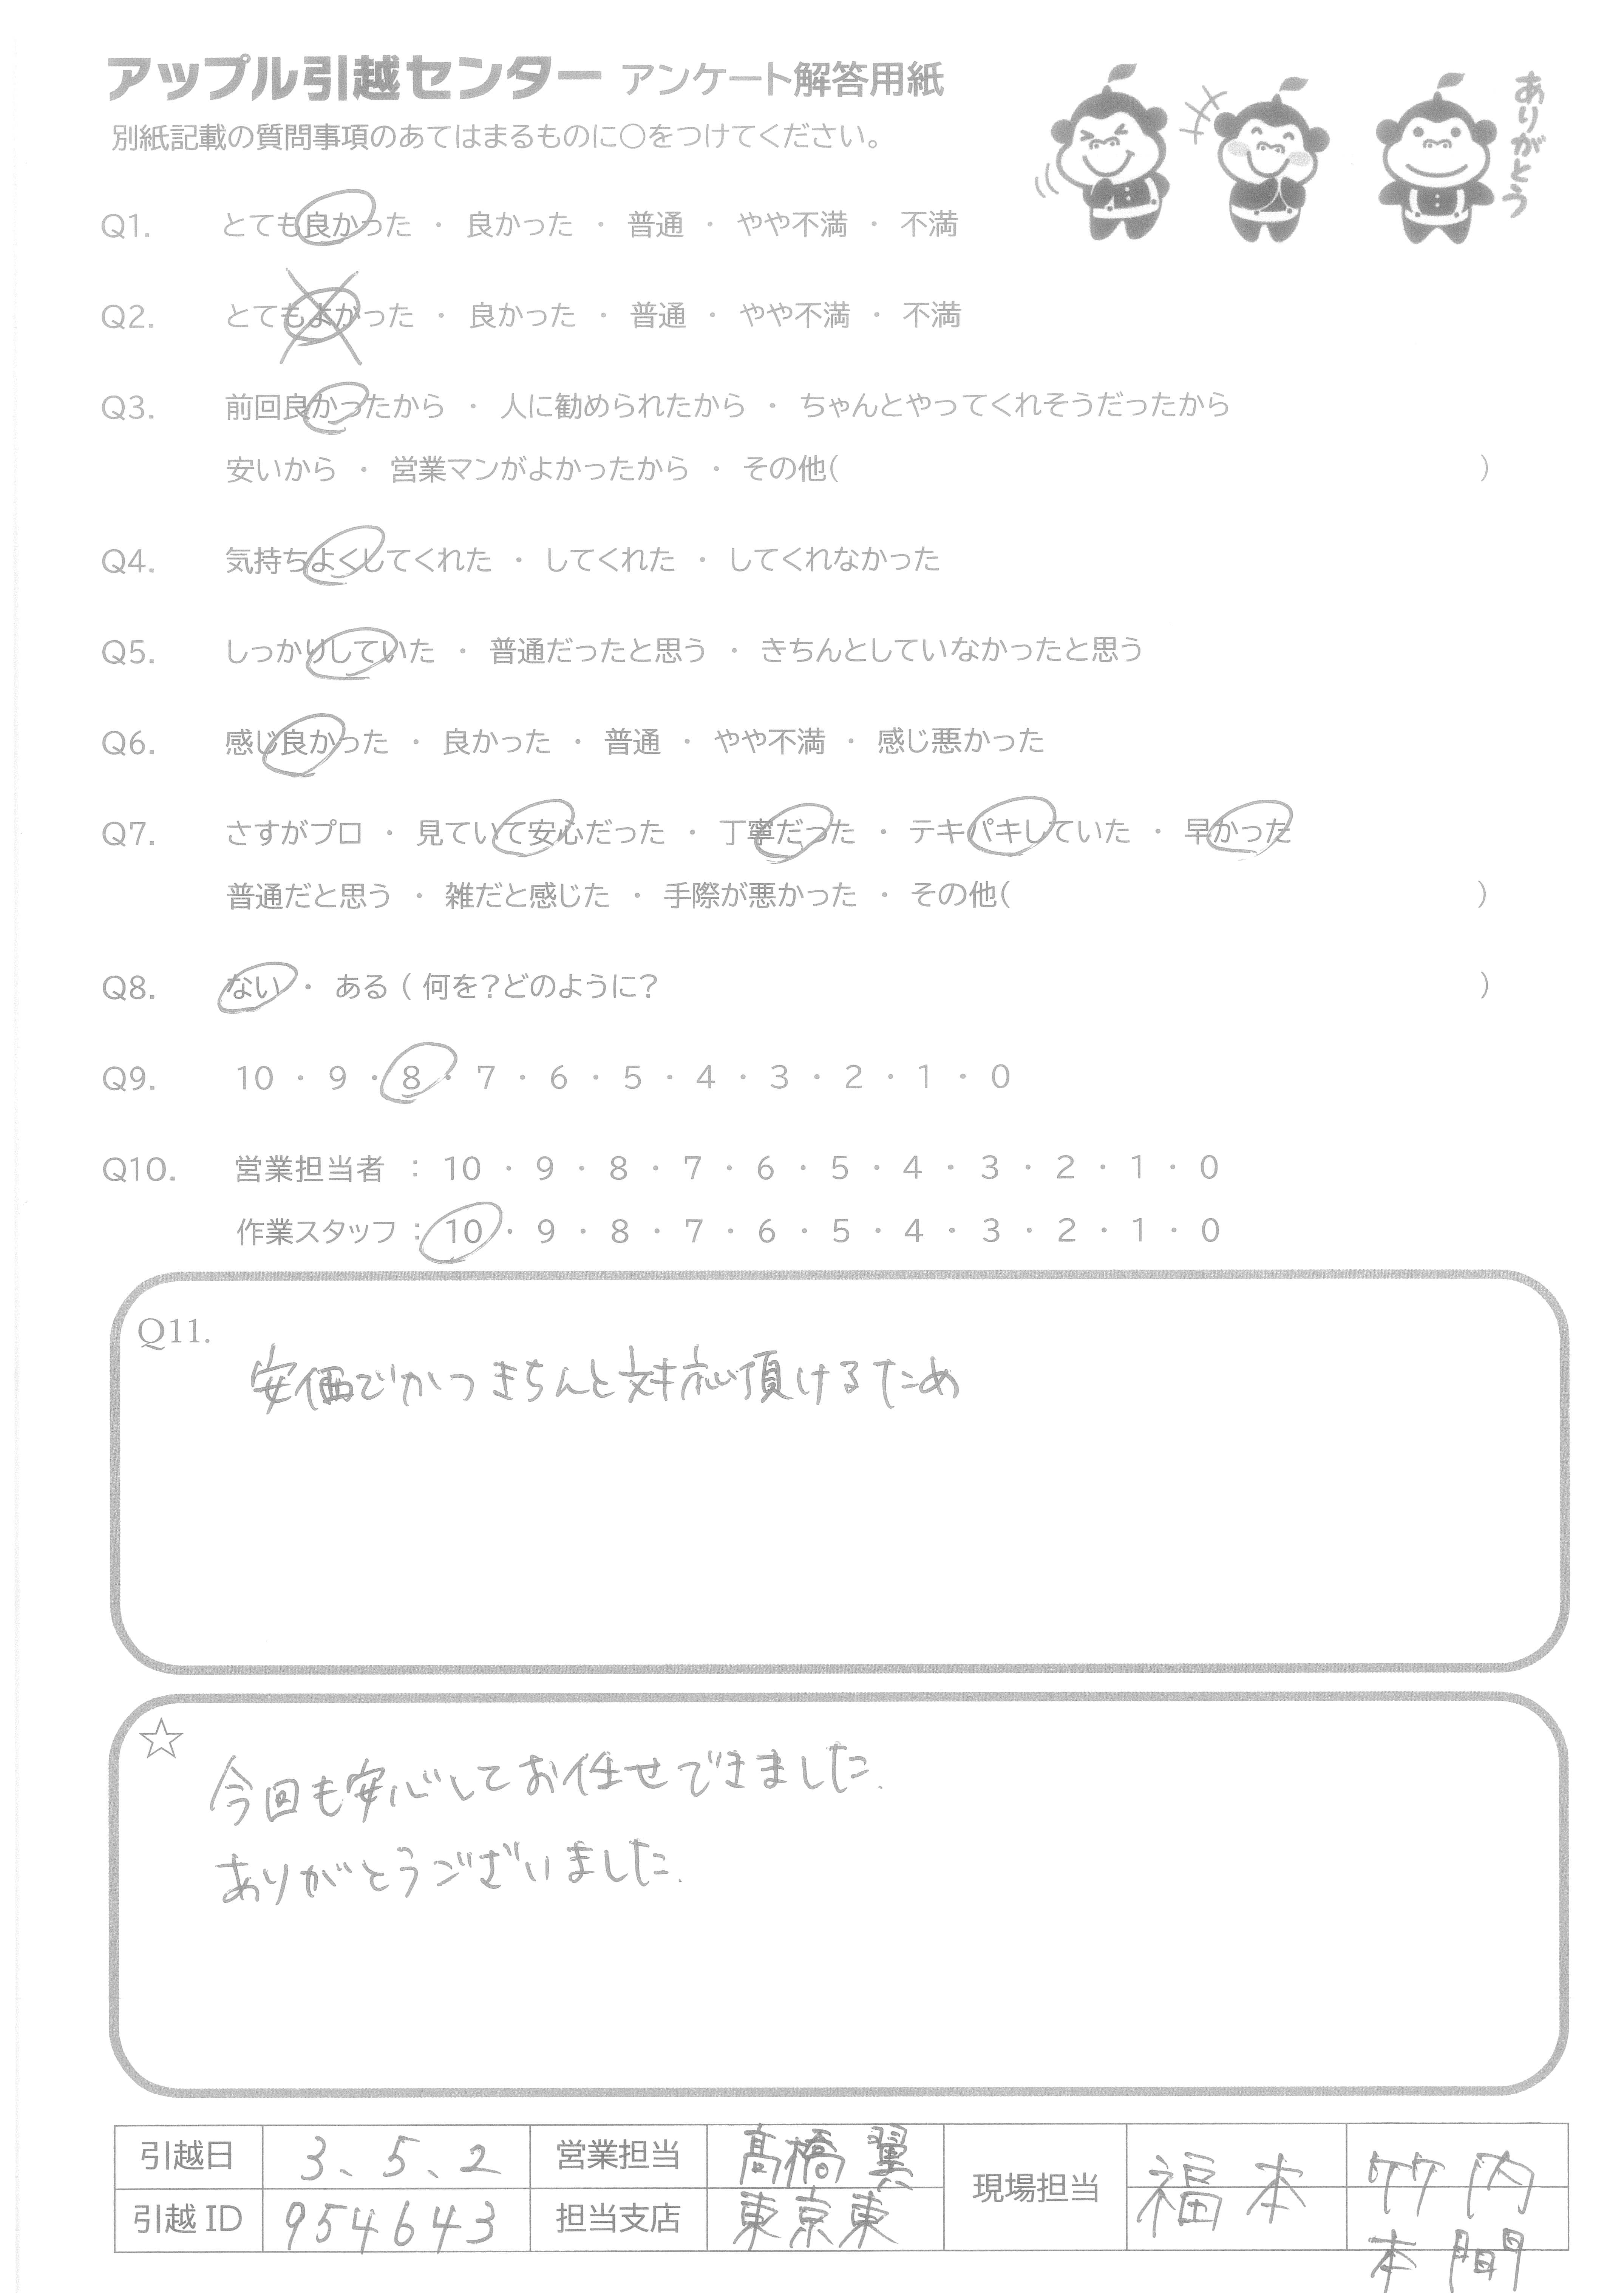 アップル引越センター アンケート解答用紙
別紙記載の質問事項のあてはまるものに○をつけてください。
ありがとう
Q1. とても良かった ・ 良かった ・ 普通 ・ やや不満 ・ 不満
Q2. とてもよかった ・ 良かった ・ 普通 ・ やや不満 ・ 不満
Q3. 前回良かったから ・ 人に勧められたから ・ ちゃんとやってくれそうだったから
安いから ・ 営業マンがよかったから ・ その他( )
Q4. 気持ちよくしてくれた ・ してくれた ・ してくれなかった
Q5. しっかりしていた ・ 普通だったと思う ・ きちんとしていなかったと思う
Q6. 感じ良かった ・ 良かった ・ 普通 ・ やや不満 ・ 感じ悪かった
Q7. さすがプロ ・ 見ていて安心だった ・ 丁寧だった ・ テキパキしていた ・ 早かった
普通だと思う ・ 雑だと感じた ・ 手際が悪かった ・ その他( )
Q8. ない ・ ある ( 何を?どのように? )
Q9. 10 ・ 9 ・ 8 ・ 7 ・ 6 ・ 5 ・ 4 ・ 3 ・ 2 ・ 1 ・ 0
Q10. 営業担当者 : 10 ・ 9 ・ 8 ・ 7 ・ 6 ・ 5 ・ 4 ・ 3 ・ 2 ・ 1 ・ 0
作業スタッフ : 10 ・ 9 ・ 8 ・ 7 ・ 6 ・ 5 ・ 4 ・ 3 ・ 2 ・ 1 ・ 0
Q11.
安価でかつきちんと対応頂けるため
☆
今回も安心してお任せできました.
ありがとうございました.
引越日 3、5、2 営業担当 髙橋 翼 現場担当 福本 竹内
引越 ID 954643 担当支店 東京東
本間